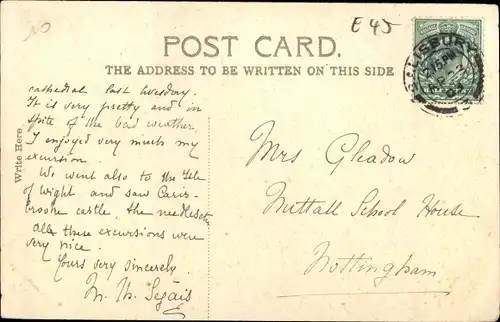 E 45
POST CARD.
THE ADDRESS TO BE WRITTEN ON THIS SIDE
SALISBURY
Write Here.
cathedral last tuesday.
It is very pretty and in
spite of the bad weather,
I enjoyed very much my
excursion.
We went also to the Isle
of Wight and saw Caris-
brooke castle, the needles etc
all these excursions were
very nice.
Yours very sincerely
M. Th. Segais
Mrs Gleadow
Nuttall School House
Nottingham